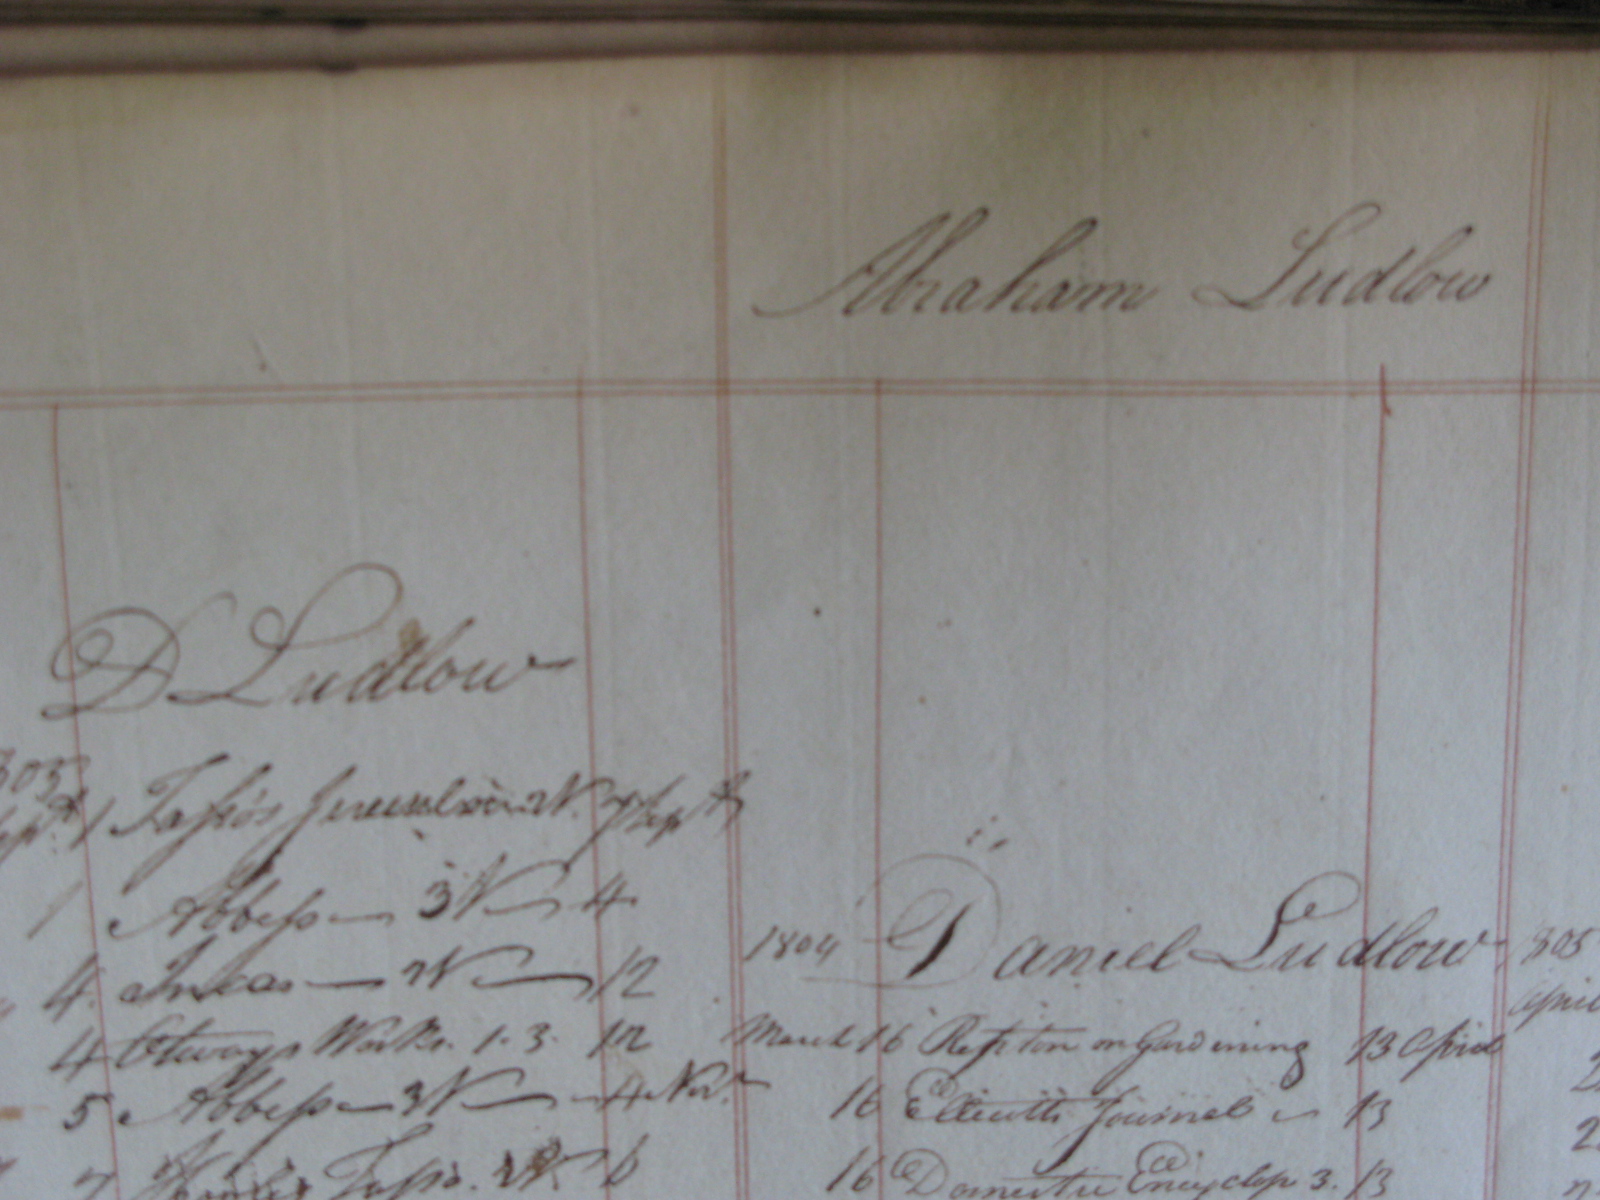 Abraham Ludlow
D Ludlow
1 Tasso's Jerusalem 2V. 7 Sept
1 Abbess 3V 4
4 Incas 2V 12
4 Otways Works. 1. 3. 12
5 Abbess 3V 4 Novr
7 Hooles Tasso. 2V. 6
1804 Daniel Ludlow
March 16 Repton on Gardening 13 April
16 Ellicotts Journal 13
16 Domestic Encyclop 3. 13
1805
April